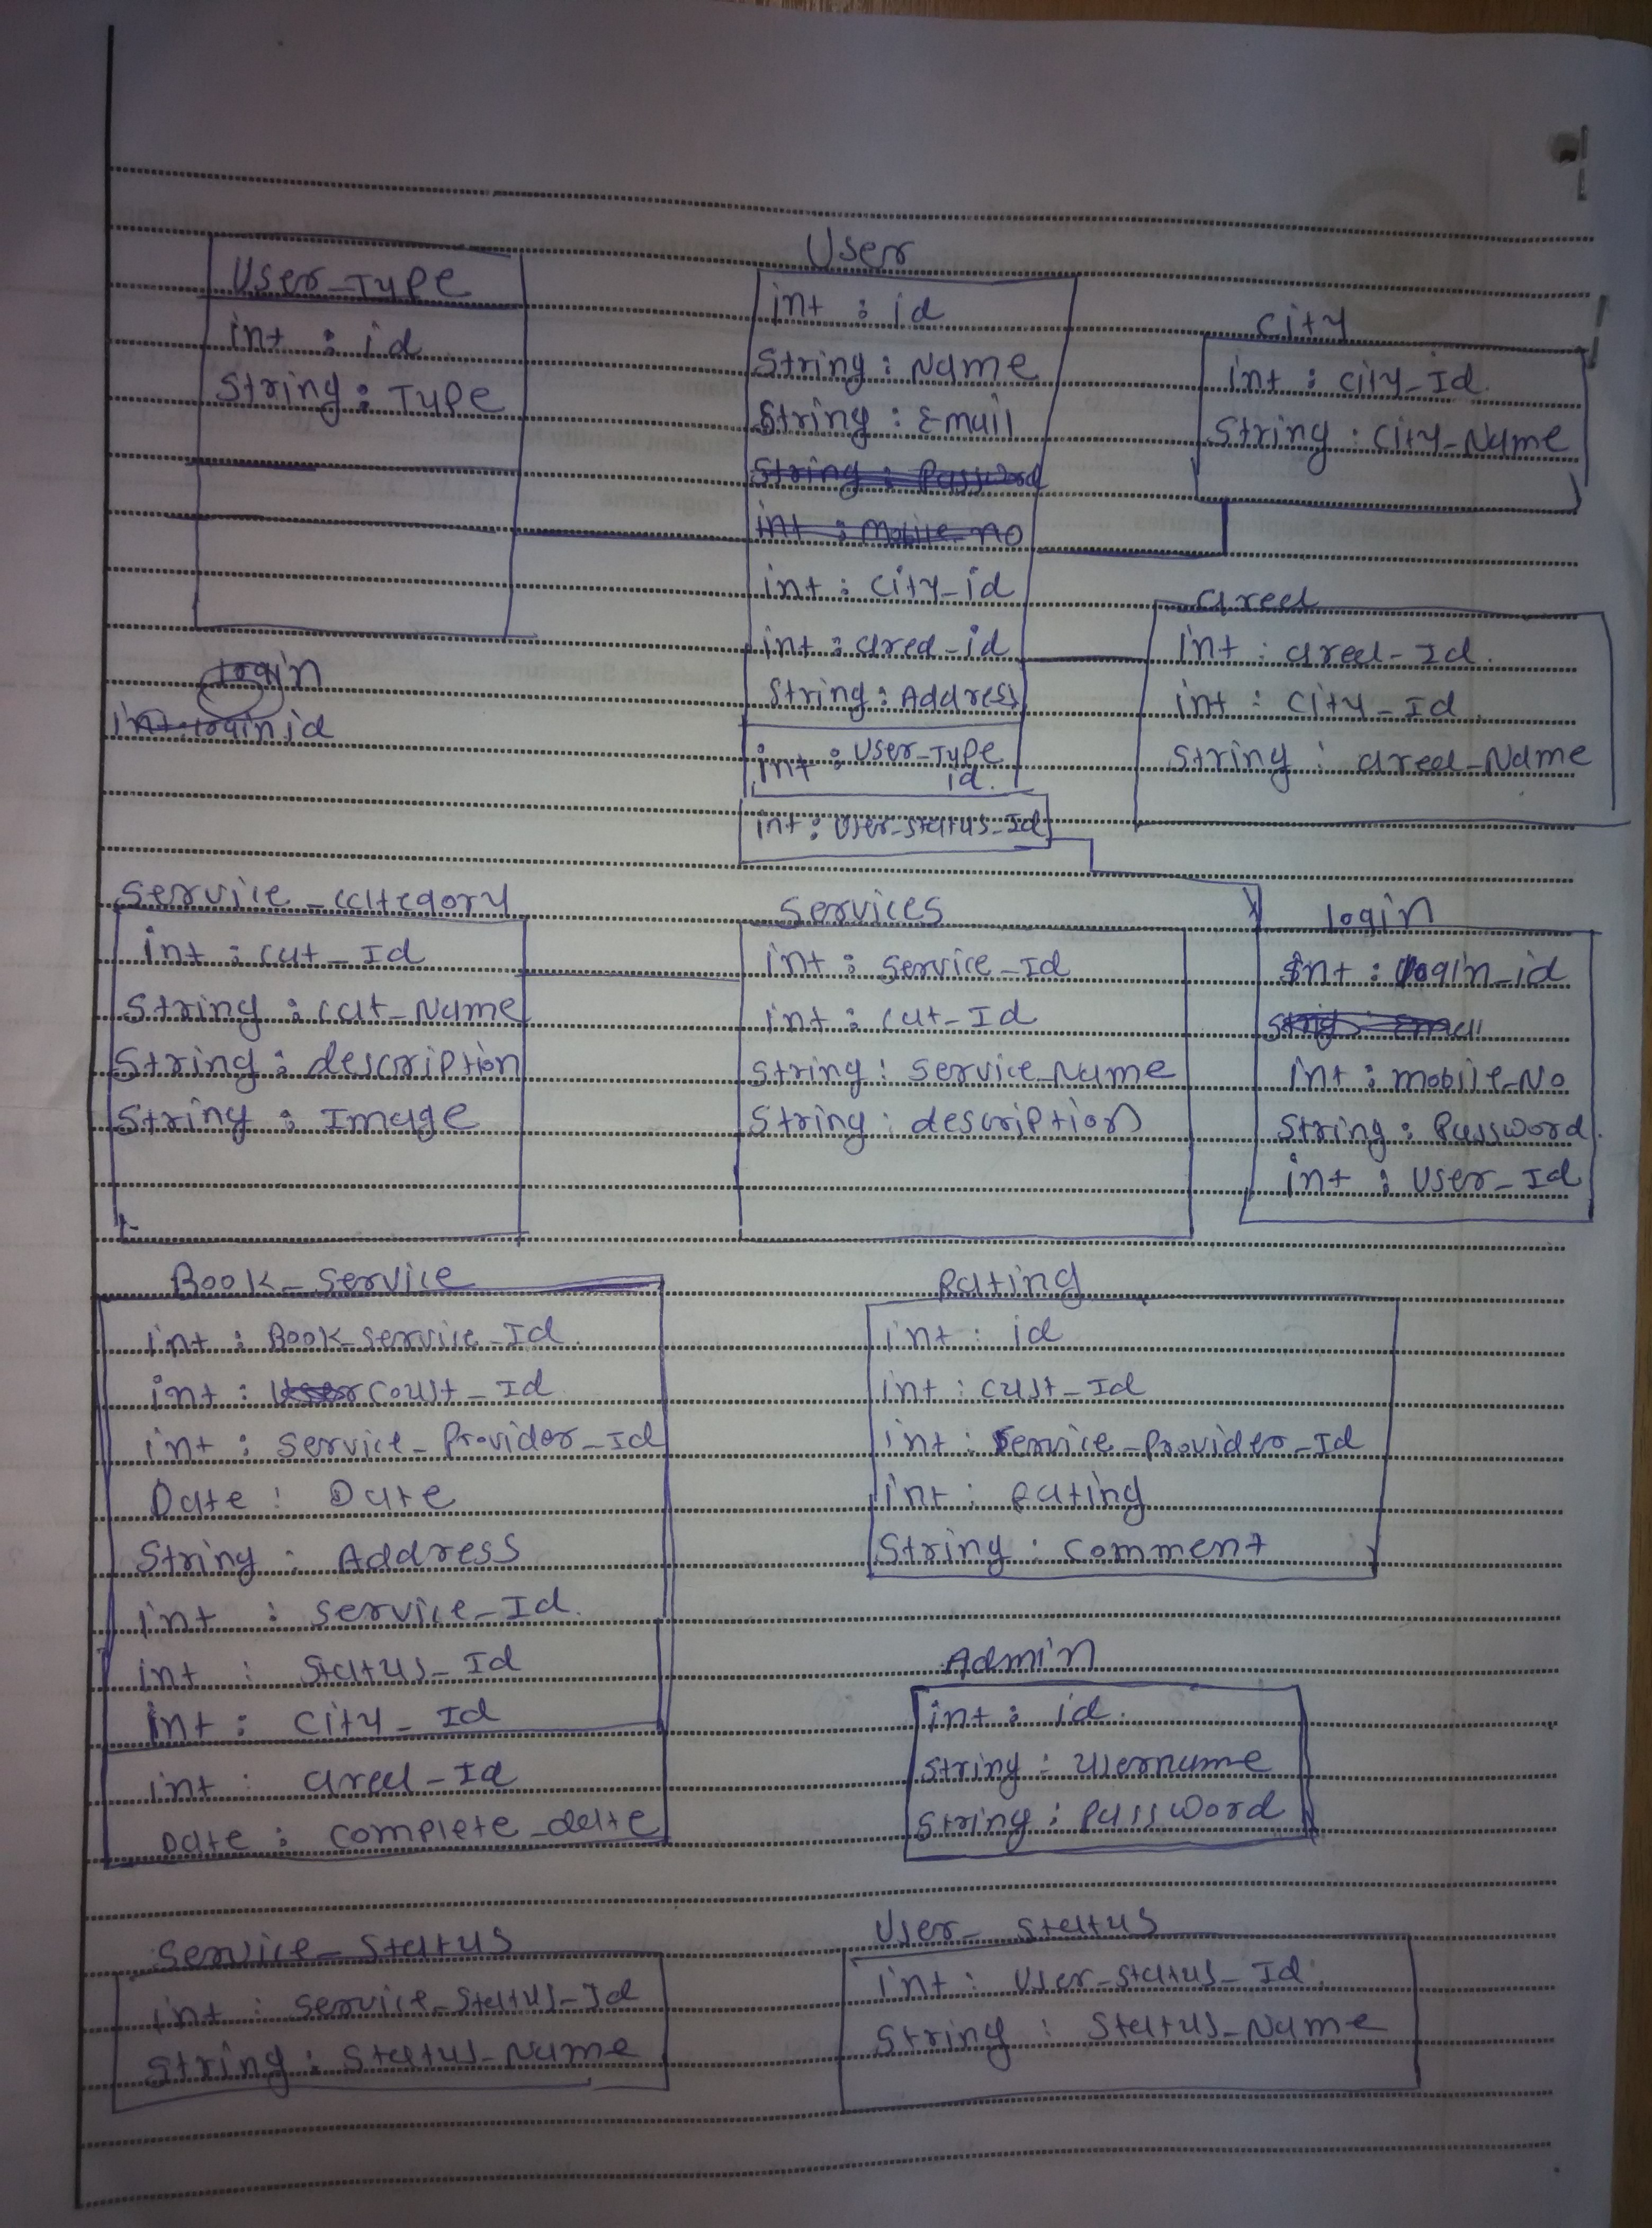 User_Type
int : id
String : Type
User
int : id
String : Name
String : Email
String : Password
int : Mobile_no
int : City_id
int : area_id
String : Address
int : User_Type
id.
int : User_Status_Id
City
int : City_Id
String : City_Name
area
int : area_Id.
int : City_Id.
String : area_Name
login
int : login id
Service_category
int : cat_Id
String : cat_Name
String : description
String : Image
Services
int : Service_Id
int : cat_Id
String : Service_Name
String : description
login
int : login_id
String : Email
int : mobile_No
String : Password.
int : User_Id
Book_Service
int : Book_Service_Id.
int : User Coust_Id
int : Service_Provider_Id
Date : Date
String : Address
int : Service_Id.
int : Status_Id
int : City_Id
int : area_Id
Date : complete_date
Rating
int : id
int : Cust_Id
int : Service_Provider_Id
int : Rating
String : Comment
Admin
int : id.
String : Username
String : Password
Service_Status
int : Service_Status_Id
String : Status_Name
User_Status
int : User_Status_Id.
String : Status_Name